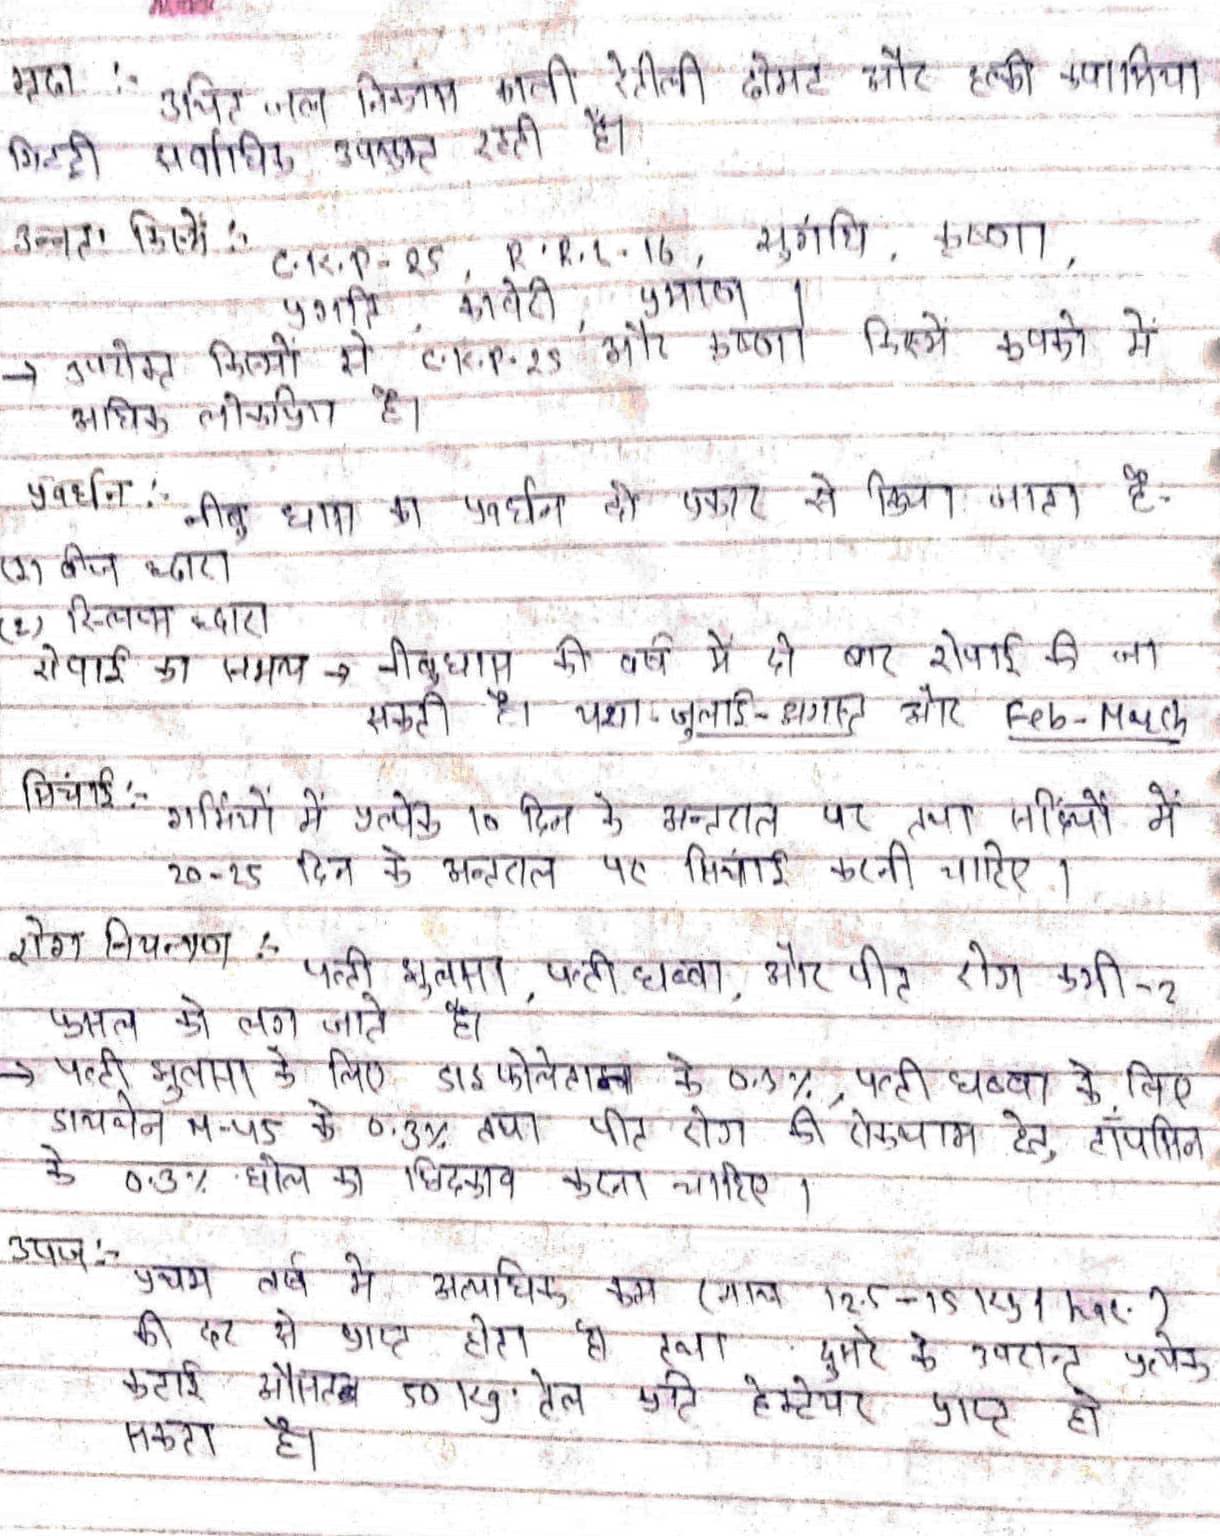 मृदा :- उचित जल निकास वाली रेतीली दोमट और हल्की कपासिया
मिट्टी सर्वाधिक उपयुक्त रहती है।
उन्नत किस्में :-
C.K.P-25, R.R.L-16, सुगंधि, कृष्णा,
प्रगति, कावेरी, प्रमाण।
→ उपरोक्त किस्मों से C.K.P-25 और कृष्णा किस्में कृषको में
अधिक लोकप्रिय है।
प्रवर्धन :- नीबु घास का प्रवर्धन दो प्रकार से किया जाता है-
(1) बीज द्वारा
(2) स्लिप्स द्वारा
रोपाई का समय → नीबुघास की वर्ष में दो बार रोपाई की जा
सकती है। यथा- जुलाई-अगस्त और Feb-March
सिंचाई :- गर्मियों में प्रत्येक 10 दिन के अन्तराल पर तथा सर्दियों में
20-25 दिन के अन्तराल पर सिंचाई करनी चाहिए।
रोग नियन्त्रण :- पत्ती झुलसा, पत्ती धब्बा, और पीत रोग कभी-2
फसल को लग जाते है।
→ पत्ती झुलसा के लिए डाइफोलेटान के 0.3%, पत्ती धब्बा के लिए
डायथेन M-45 के 0.3% तथा पीत रोग की रोकथाम हेतु टॉपसिन
के 0.3% घोल का छिड़काव करना चाहिए।
उपज :- प्रथम वर्ष मे अत्यधिक कम (मात्र 12.5-15 kg/hac.)
की दर से प्राप्त होता है तथा दुसरे के उपरान्त प्रत्येक
कटाई औसतन 50 kg. तेल प्रति हेक्टेयर प्राप्त हो
सकता है।